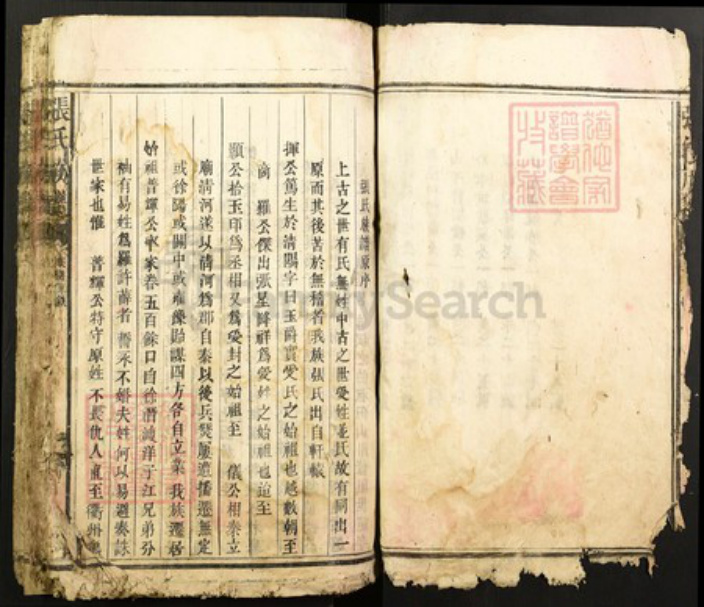 張氏族譜原序
上古之世有氏無姓中古之世受姓並氏故有同出一
原而其後苦於無稽者我族張氏出自軒轅
揮公篤生於清陽字曰玉爵實受氏之始祖也越數朝至
商 羅公傑出張星降祥為受姓之始祖也迨至
顯公拾玉印為丞相又為受封之始祖至 儀公相秦立
廟清河遂以清河為郡自秦以後兵燹屢遭播遷無定
或徐 或關中或 貽謀四方各自立業我族遷居
始祖普 公 家眷五百餘口自徐 江兄弟分
袖有易姓為羅許薛者 誓永不婚夫姓何以易避秦誅
世家也惟 普 公特守原姓不畏仇人直至衢州
張氏族譜
FamilySearch